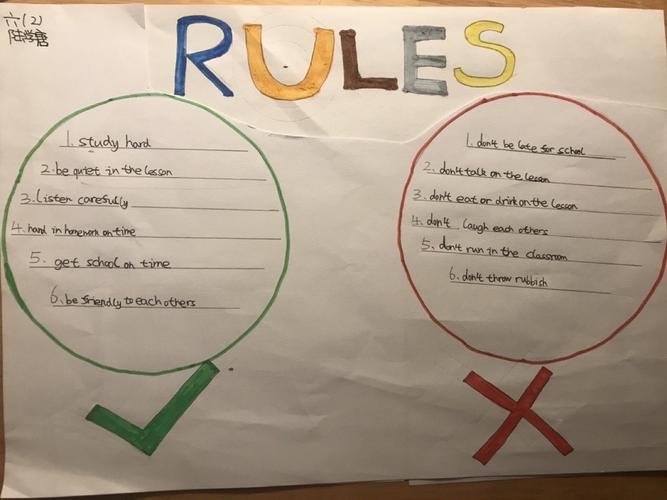 六(2)
陆学睿
RULES
1. study hard
2. be quiet in the lesson
3. Listen carefully
4. hand in homework on time
5. get school on time
6. be friendly to each others
1. don't be late for school
2. don't talk on the lesson
3. don't eat or drink on the lesson
4. don't laugh each others
5. don't run in the classroom
6. don't throw rubbish